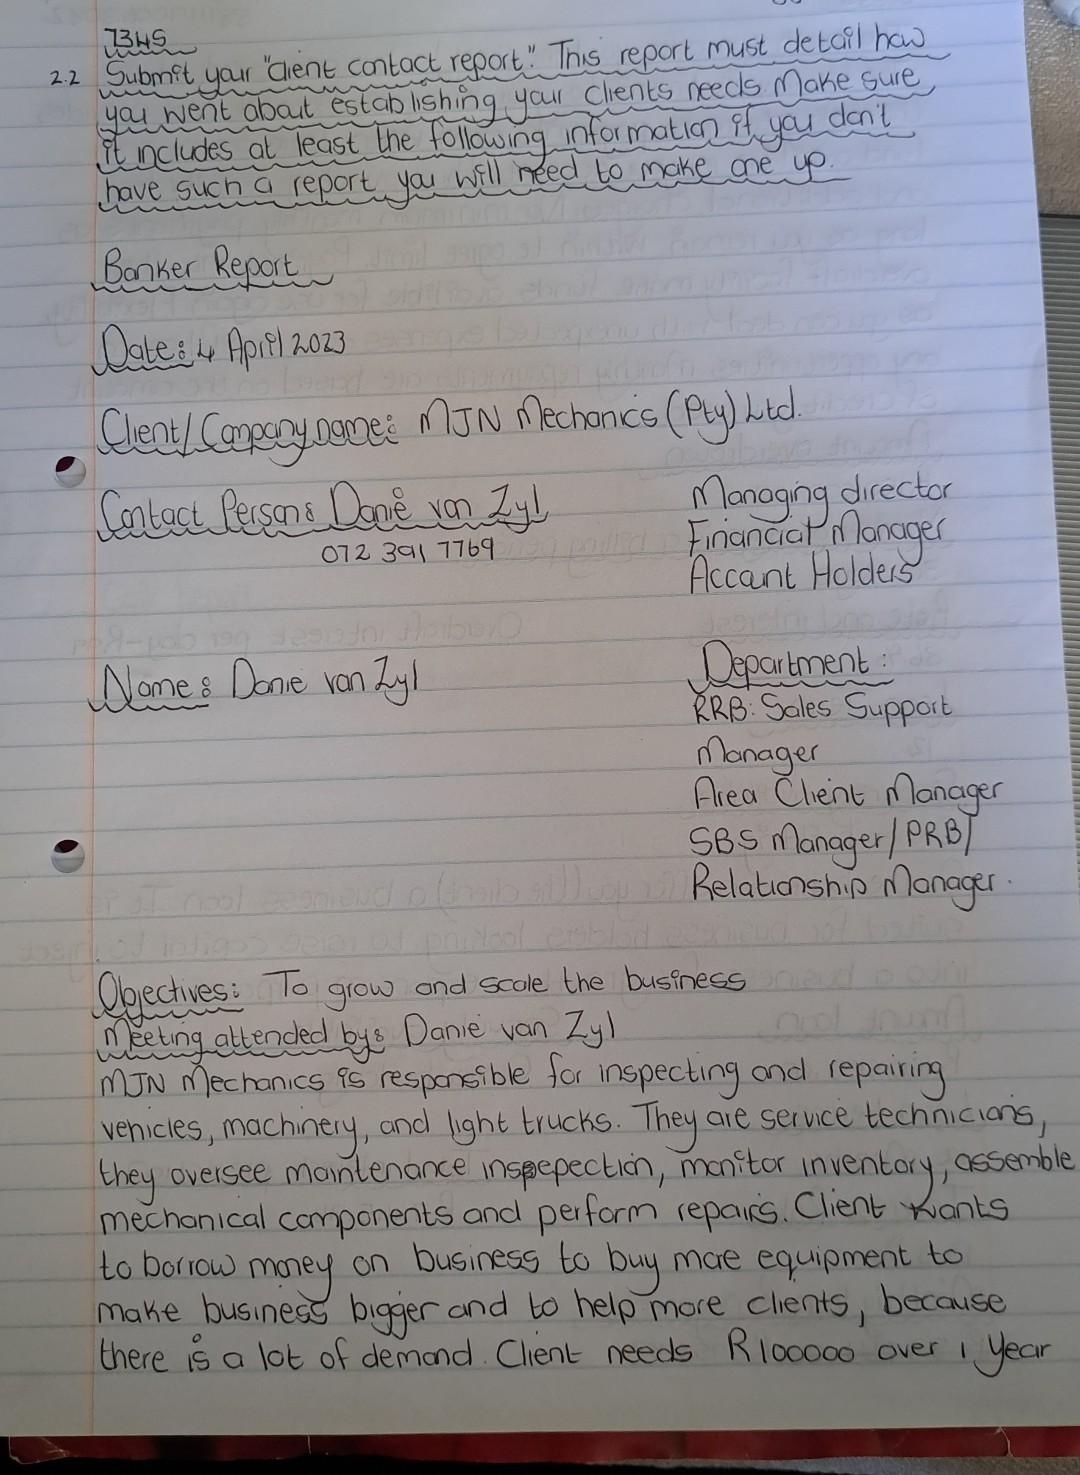 7345
2.2 Submit your "client contact report". This report must detail how
you went about establishing your clients needs. Make sure
it includes at least the following information if you don't
have such a report you will need to make one up.
Banker Report
Date: 4 April 2023
Client/Company name: MJN Mechanics (Pty) Ltd.
Contact Person: Danie van Zyl
072 391 7769
Managing director
Financial Manager
Account Holders
Name: Danie van Zyl
Department:
RRB: Sales Support
Manager
Area Client Manager
SBS Manager/PRB/
Relationship Manager.
Objectives: To grow and scale the business
Meeting attended by: Danie van Zyl
MJN Mechanics is responsible for inspecting and repairing
vehicles, machinery, and light trucks. They are service technicians,
they oversee maintenance inspepection, monitor inventory, assemble
mechanical components and perform repairs. Client wants
to borrow money on business to buy more equipment to
make business bigger and to help more clients, because
there is a lot of demand. Client needs R100000 over 1 year